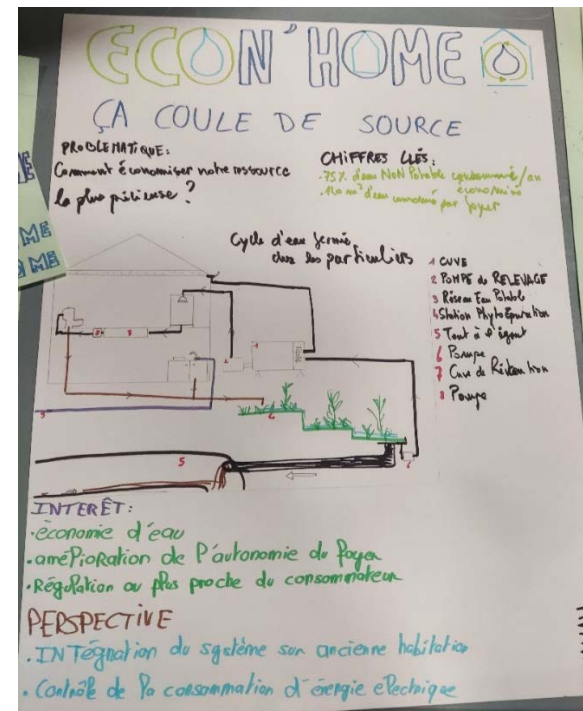 ECON'HOME
ÇA COULE DE SOURCE
PROBLEMATIQUE:
Comment économiser notre ressource
la plus précieuse?
CHIFFRES CLÉS:
.75% d'eau NON Potable /an
économisé
.120 m³ d'eau par foyer
Cycle d'eau fermé
chez les particuliers
1 CUVE
2 POMPE de RELEVAGE
3 Réseau Eau Potable
4 Station Phytoépuration
5 Tout à l'égout
6 Pompe
7 Cuve de Rétention
8 Pompe
INTERÊT:
.économie d'eau
.amélioration de l'autonomie du foyer
.Régulation au plus proche du consommateur
PERSPECTIVE
.INTégration du système sur ancienne habitation
.Contrôle de la consommation d'énergie electrique
ME
ME